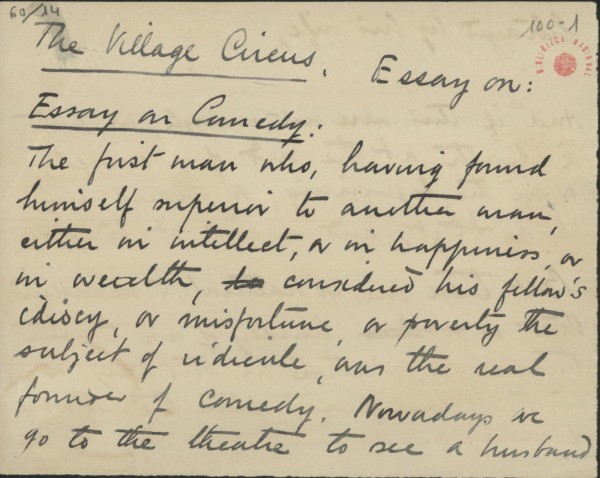 60/14
100-1
BIBLIOTECA NACIONAL
The Village Circus. Essay on:
Essay on Comedy.
The first man who, having found
himself superior to another man,
either in intellect, or in happiness, or
in wealth, to considered his fellow's
idiocy, or misfortune, or poverty the
subject of ridicule, was the real
founder of comedy. Nowadays we
go to the theatre to see a husband